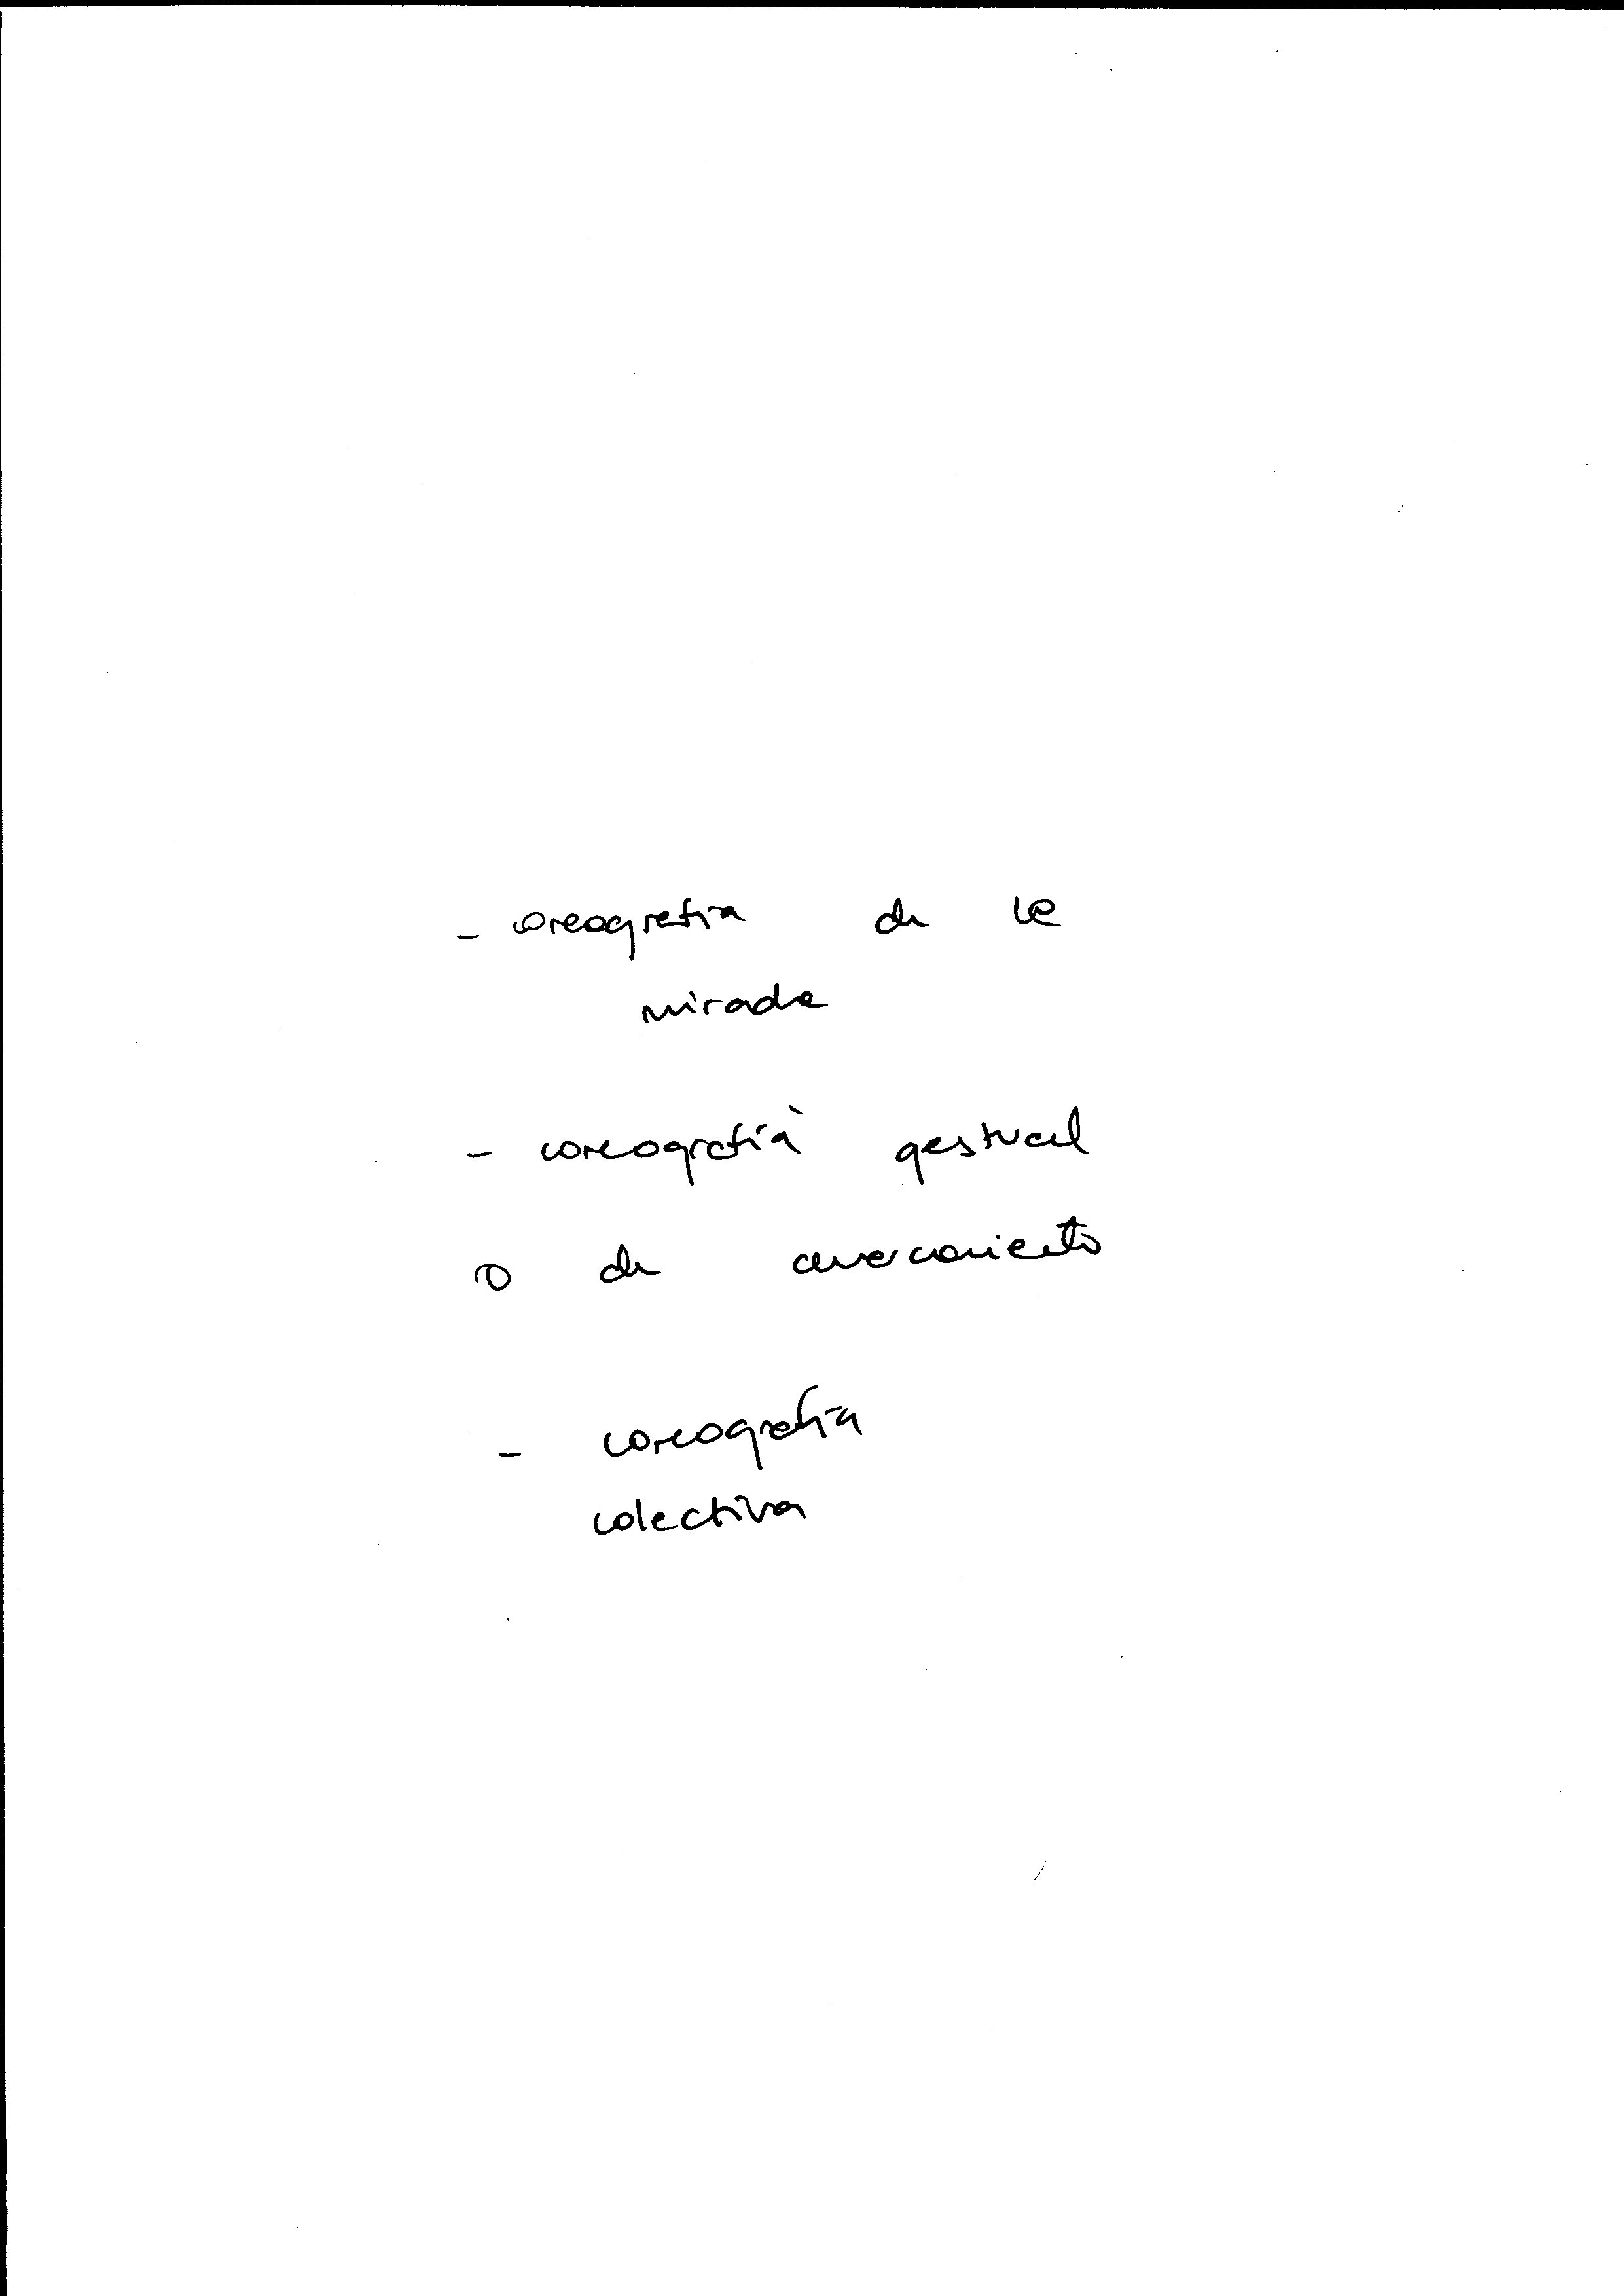 - coreografía de la
mirada
- coreografía gestual
o de acercamiento
- coreografía
colectiva